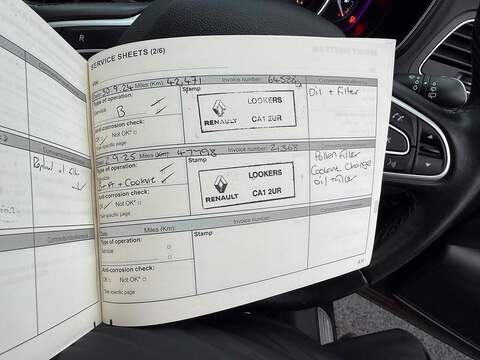 SERVICE SHEETS (2/6)
Date: 30.9.24 Miles (Km): 42,471 Invoice number:
Type of operation: Stamp
Service
B
Anti-corrosion check:
OK Not OK*
*See specific page
RENAULT
LOOKERS
CA1 2UR
Oil + Filter
2.9.25 Miles (Km): Invoice number: 21368
Type of operation: Stamp
Service
+ A + Coolant
Anti-corrosion check:
Not OK*
*See specific page
RENAULT
LOOKERS
CA1 2UR
Pollen Filter
Coolant Change
Oil + Filter
Date: Miles (Km): Invoice number: Comments/reference
Type of operation: Stamp
Service
Anti-corrosion check:
OK Not OK*
*See specific page